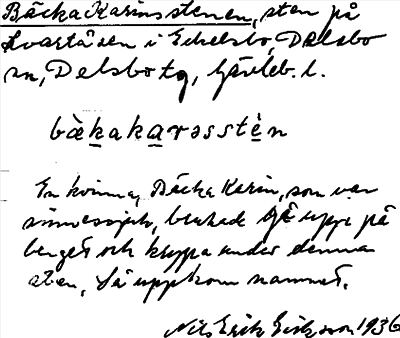 Bäcka Karins stenen, sten på
Svartåsen i Eckelsbo, Delsbo
sn, Delsbo tg, Gävleb. l.
bæ̀kakarəsstè̩n
En kvinna, Bäcka Karin, som var
sinnessjuk, brukade gå uppe på
berget och krypa under denna
sten, Så uppkom namnet.
Nils Erik Eriksson 1936